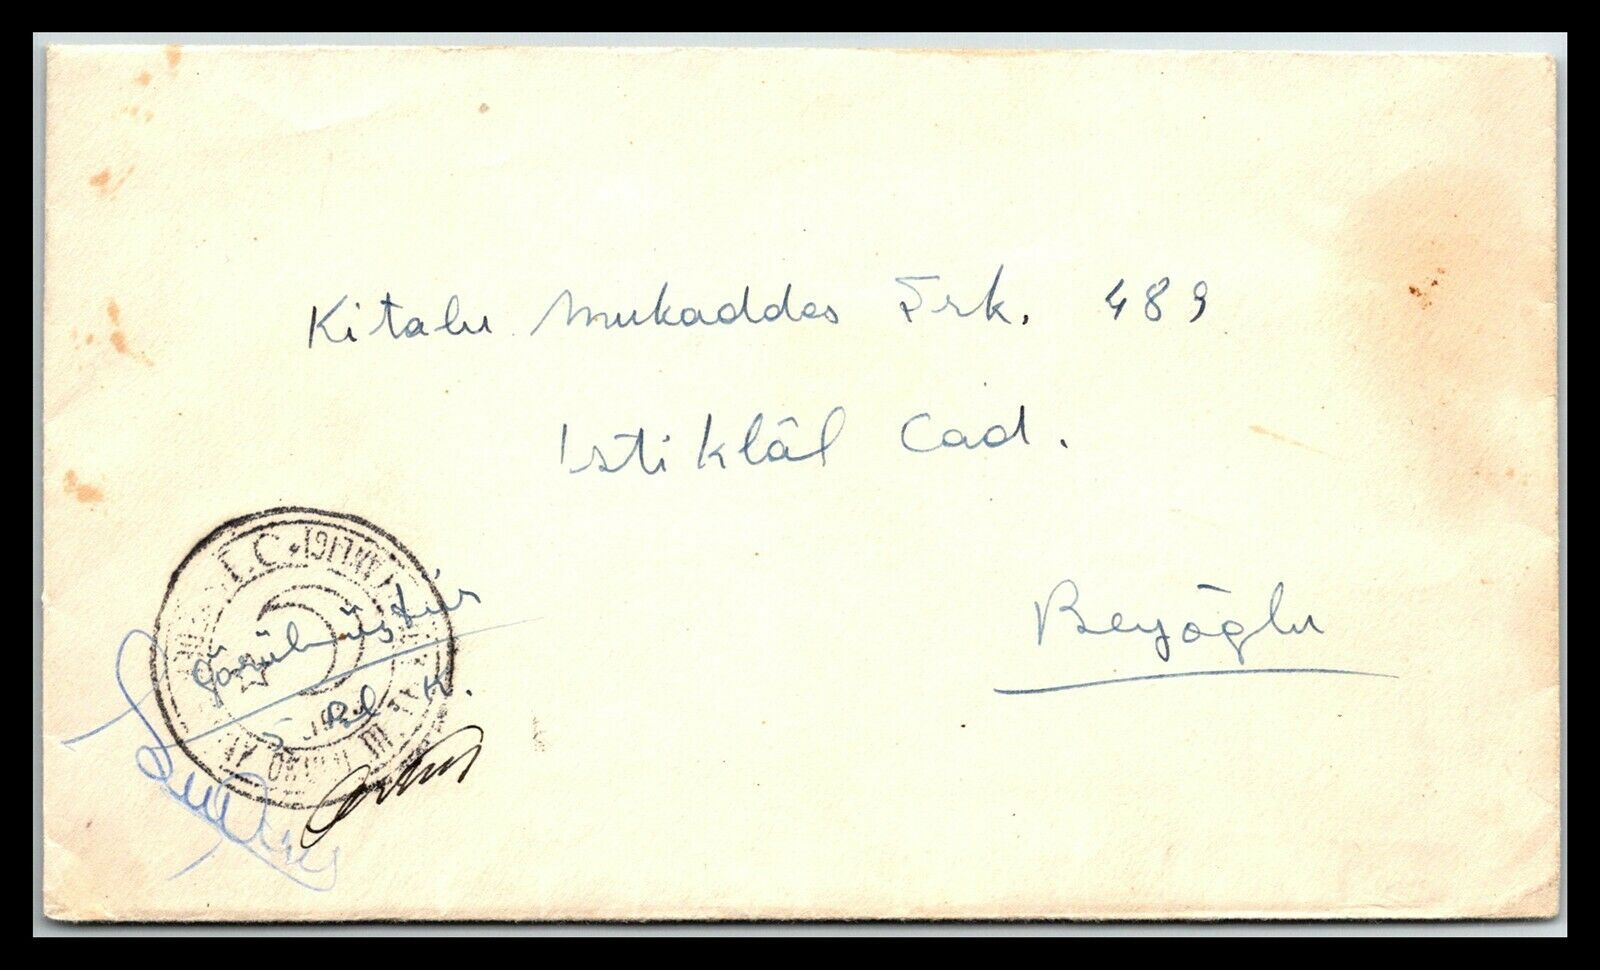 Kitabı Mukaddes Şrk. 489
İstiklâl Cad.
Beyoğlu
T.C.
Görülmüştür
K.